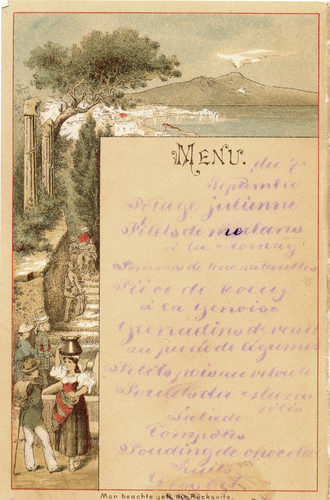 MENU.
du 7
Septembre
Potage julienne
Filets de merlans
à la Mornay
Pommes de terre naturelles
Pièce de boeuf
à la Genvoise
Grenadins de veau
au purée de légumes
Petits pois au velouté
Poulets du
Salade
Compotes
Pouding de chocolat
Fruits
Man beachte gefl. die Rückseite.